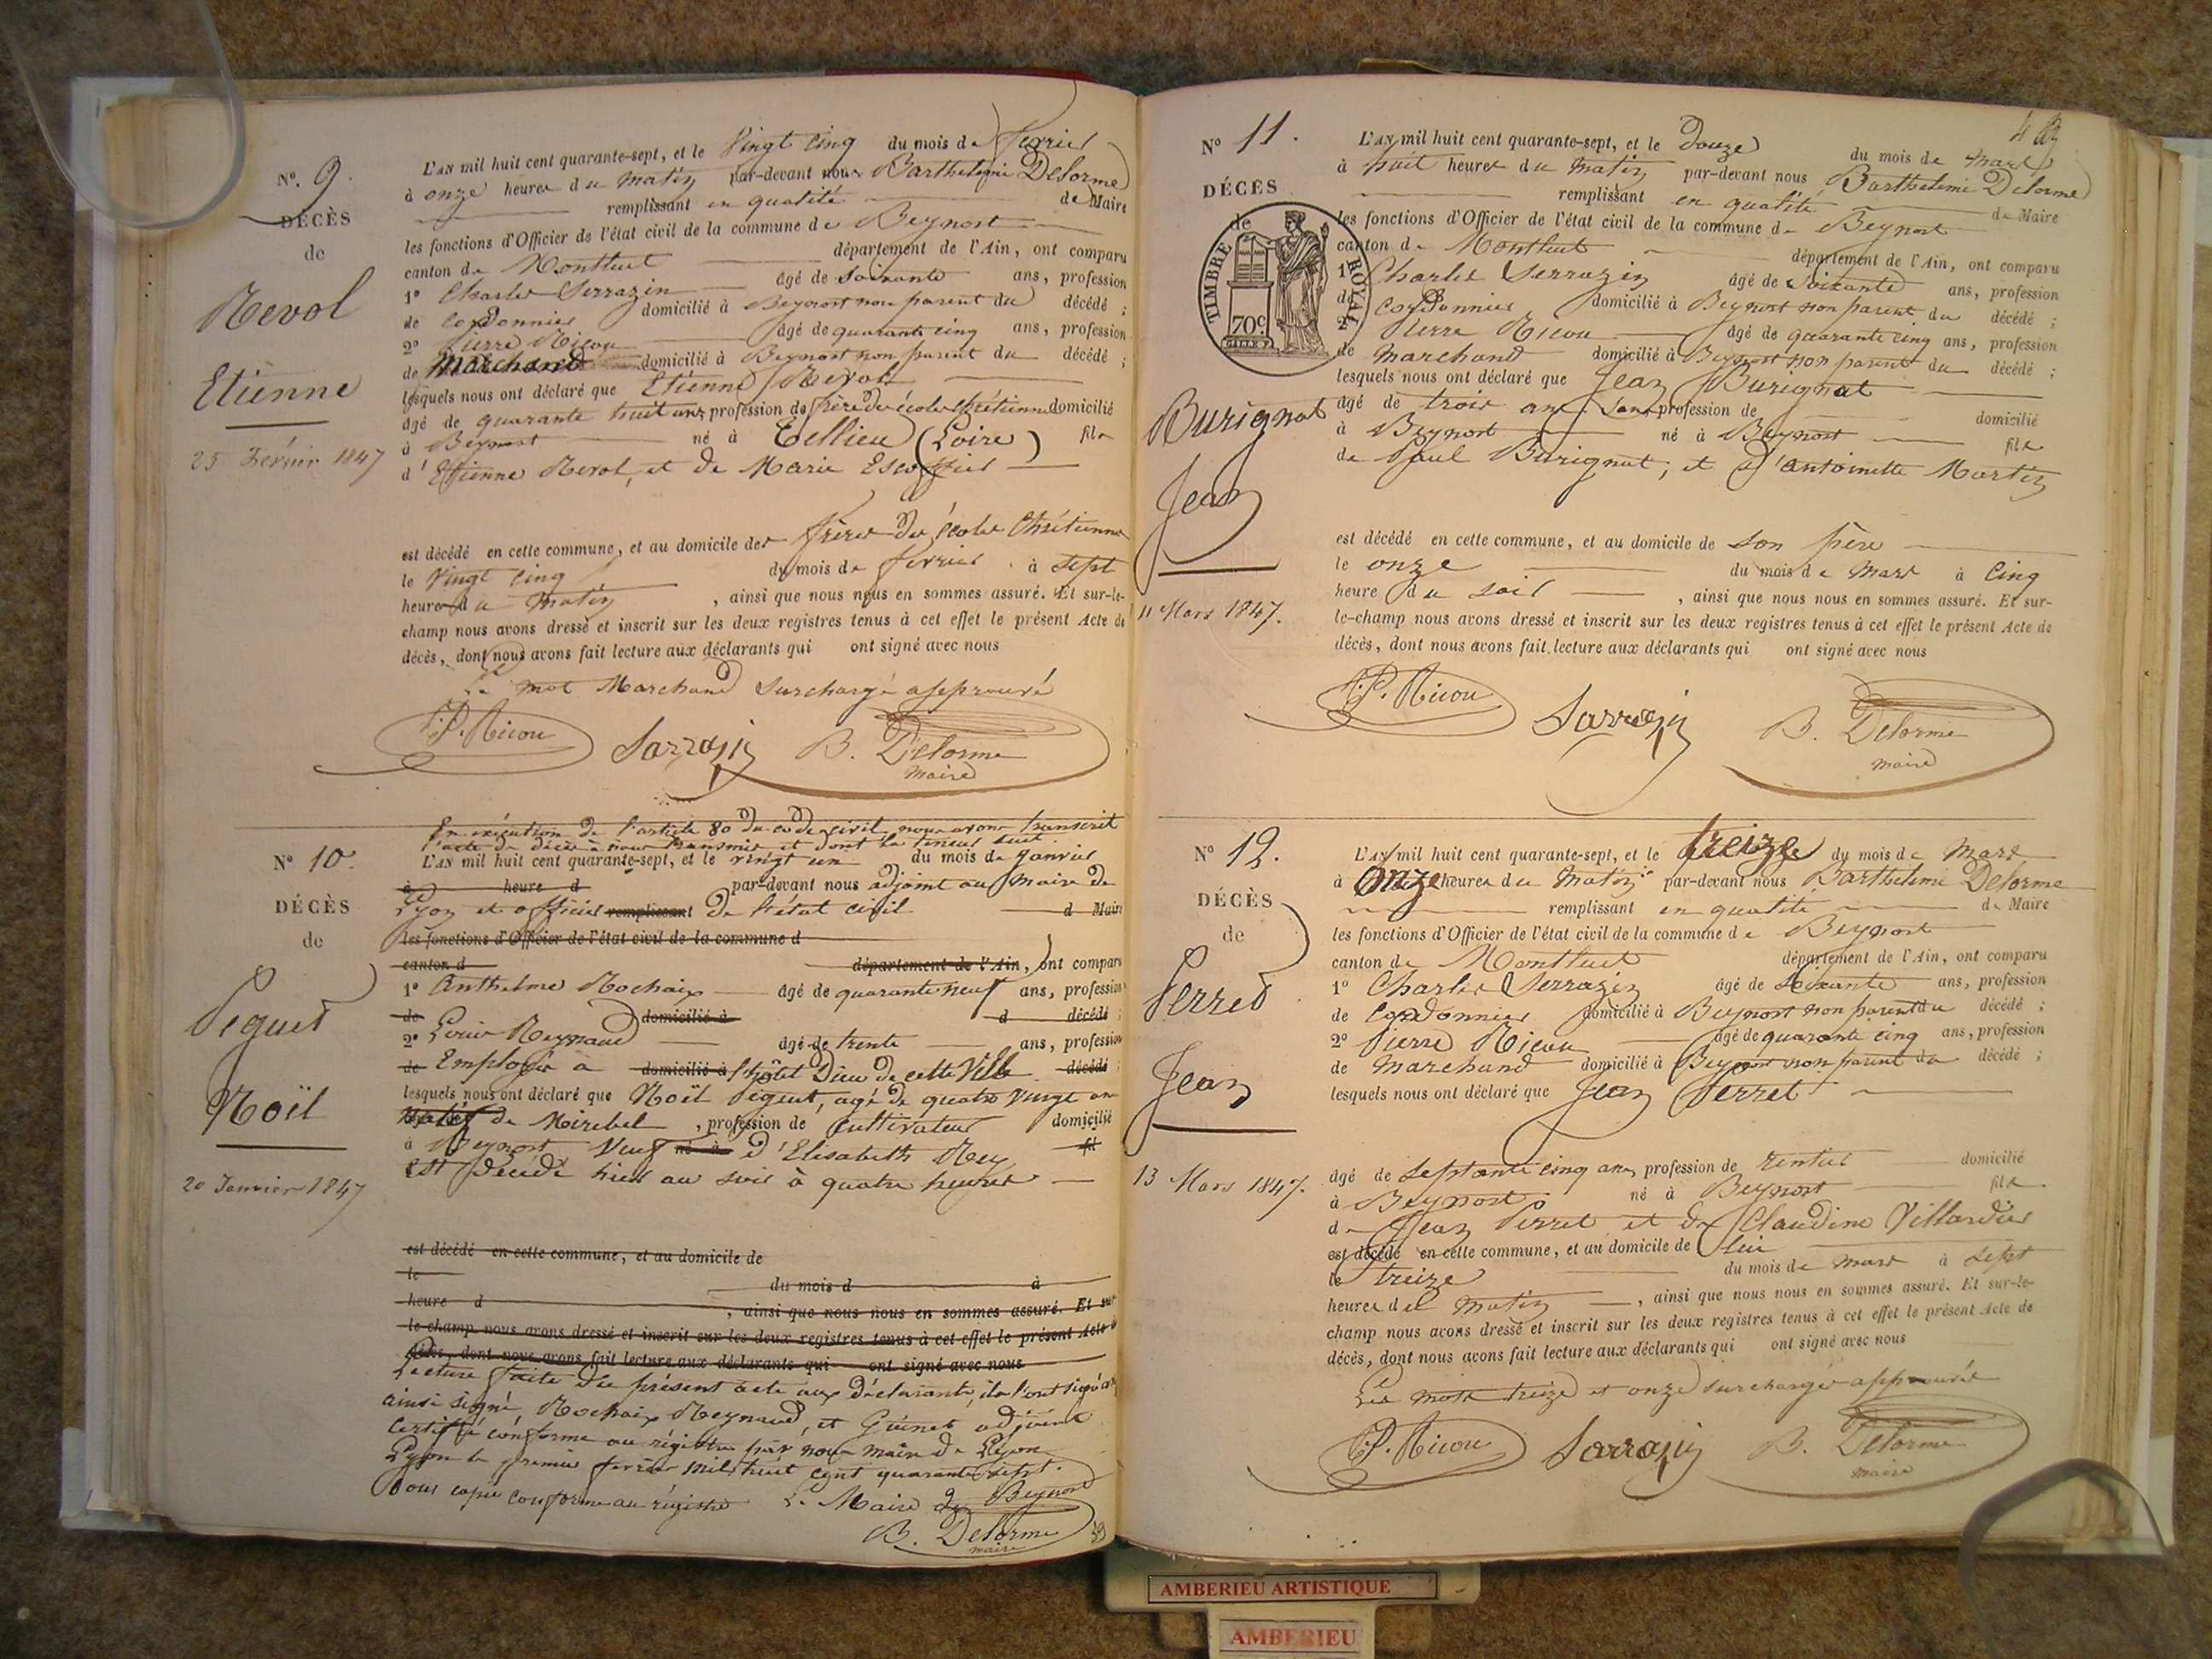 N°. 9.
DÉCÈS
de
Revol
Etienne
25 Février 1847
L'AN mil huit cent quarante-sept, et le Vingt cinq du mois de Fevrier
à onze heures du matin par-devant nous Barthelemi Delorme
remplissant en qualité de Maire
les fonctions d'Officier de l'état civil de la commune de Beynost
canton de Montluel département de l'Ain, ont comparu
1° Charles Serrazin âgé de soixante ans, profession
de cordonnier domicilié à Beynost non parent du décédé ;
2° Pierre Nicou âgé de quarante cinq ans, profession
de Marchand domicilié à Beynost non parent du décédé ;
lesquels nous ont déclaré que Etienne Revol
âgé de quarante huit ans profession de frère des écoles chrétiennes domicilié
à Beynost né à Cellieu (Loire) fils
d'Etienne Revol, et de Marie Escoffier
est décédé en cette commune, et au domicile des frères des écoles Chrétiennes
le vingt cinq du mois de fevrier à sept
heures du matin, ainsi que nous nous en sommes assuré. Et sur-le-
champ nous avons dressé et inscrit sur les deux registres tenus à cet effet le présent Acte de
décès, dont nous avons fait lecture aux déclarants qui ont signé avec nous
Le mot Marchand surchargé approuvé
P. Nicou Sarrazin B. Delorme
maire
N° 10.
DÉCÈS
de
Peguet
Noël
20 Janvier 1847
En exécution de l'article 80 du code civil nous avons transcrit
l'acte de décès à nous transmis et dont la teneur suit
L'AN mil huit cent quarante-sept, et le vingt un du mois de Janvier
à heure d par-devant nous adjoint au Maire de
Lyon et officier remplissant de l'état civil d Maire
les fonctions d'Officier de l'état civil de la commune d
canton d département de l'Ain, ont comparu
1° Anthelme Rochaix âgé de quarante neuf ans, profession
de domicilié à d décédé ;
2° Louis Reynaud âgé de trente ans, profession
de Employés à domicilié à l'hôtel Dieu de cette Ville décédé ;
lesquels nous ont déclaré que Noël Peguet, âgé de quatre vingt ans
natif de Miribel, profession de Cultivateur domicilié
à Beynost Veuf né à d'Elisabeth Rey fil
est décédé hier au soir à quatre heures
est décédé en cette commune, et au domicile de
le du mois d à
heure d , ainsi que nous nous en sommes assuré. Et sur
le-champ nous avons dressé et inscrit sur les deux registres tenus à cet effet le présent Acte d
décès, dont nous avons fait lecture aux déclarants qui ont signé avec nous
Lecture faite du présent acte aux déclarants, ils l'ont signé
ainsi signé, Rochaix Reynaud, et Guinet adjoint
Certifié conforme au régistre par nous maire de Lyon
Lyon le premier fevrier mil huit cent quarante sept.
Pour copie conforme au régistre Le Maire de Beynost
B. Delorme
maire
N° 11.
DÉCÈS
de
TIMBRE ROYAL
70c
Burignat
Jean
11 Mars 1847.
L'AN mil huit cent quarante-sept, et le douze du mois de Mars
à huit heures du matin par-devant nous Barthelemi Delorme
remplissant en qualité de Maire
les fonctions d'Officier de l'état civil de la commune de Beynost
canton de Montluel département de l'Ain, ont comparu
1° Charles Serrazin âgé de soixante ans, profession
de cordonnier domicilié à Beynost non parent du décédé ;
2° Pierre Nicou âgé de quarante cinq ans, profession
de marchand domicilié à Beynost non parent du décédé ;
lesquels nous ont déclaré que Jean Burignat
âgé de trois ans sans profession de domicilié
à Beynost né à Beynost fils
de Paul Burignat, et d'Antoinette Martin
est décédé en cette commune, et au domicile de son père
le onze du mois de Mars à Cinq
heure du soir, ainsi que nous nous en sommes assuré. Et sur-
le-champ nous avons dressé et inscrit sur les deux registres tenus à cet effet le présent Acte de
décès, dont nous avons fait lecture aux déclarants qui ont signé avec nous
P. Nicou Sarrazin B. Delorme
maire
N° 12.
DÉCÈS
de
Perret
Jean
13 Mars 1847.
L'AN mil huit cent quarante-sept, et le treize du mois de Mars
à Onze heures du Matin par-devant nous Barthelemi Delorme
remplissant en qualité de Maire
les fonctions d'Officier de l'état civil de la commune de Beynost
canton de Montluel département de l'Ain, ont comparu
1° Charles Serrazin âgé de soixante ans, profession
de Cordonnier domicilié à Beynost non parent du décédé ;
2° Pierre Nicou âgé de quarante cinq ans, profession
de Marchand domicilié à Beynost non parent du décédé ;
lesquels nous ont déclaré que Jean Perret
âgé de septante cinq ans, profession de rentier domicilié
à Beynost né à Beynost fils
de Jean Perret et de Claudine Villardier
est décédé en cette commune, et au domicile de lui
le treize du mois de Mars à sept
heures du matin, ainsi que nous nous en sommes assuré. Et sur-le-
champ nous avons dressé et inscrit sur les deux registres tenus à cet effet le présent Acte de
décès, dont nous avons fait lecture aux déclarants qui ont signé avec nous
Les mots treize et onze surchargés approuvés
P. Nicou Sarrazin B. Delorme
maire
AMBERIEU ARTISTIQUE
AMBERIEU